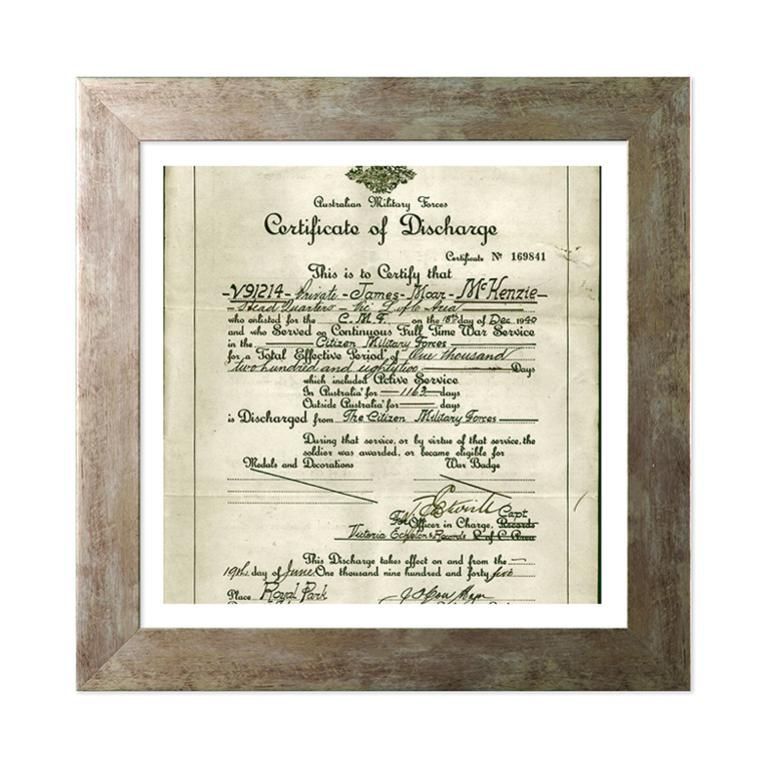 Australian Military Forces
Certificate of Discharge
Certificate Nº 169841
This is to Certify that
-V91214- Private - James - Moar - McKenzie-
- Head Quarters - Vic L of C Area
who enlisted for the C.M.F. on the 15th day of Dec 1940
and who Served on Continuous Full Time War Service
in the Citizen Military Forces
for a Total Effective Period of One thousand
two hundred and eighty two Days
which included Active Service
In Australia for 1163 days
Outside Australia for days
is Discharged from The Citizen Military Forces
During that service, or by virtue of that service, the
soldier was awarded, or became eligible for
Medals and Decorations War Badge
Capt
For Officer in Charge, Records
Victoria Echelon & Records L of C Area
This Discharge takes effect on and from the
19th day of June One thousand nine hundred and forty five
Place Royal Park